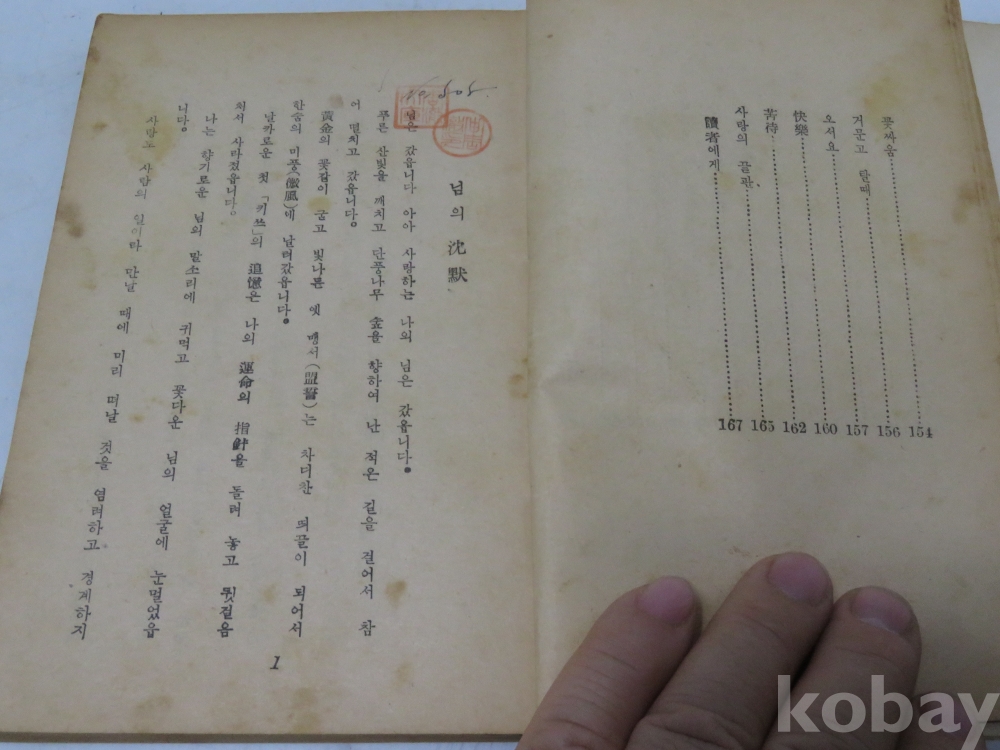 꽃싸움 154
거문고 탈때 156
오서요 157
快樂 160
苦待 162
사랑의 끝판 165
讀者에게 167
님의 沈默
님은 갔읍니다 아아 사랑하는 나의 님은 갔읍니다。
푸른 산빛을 깨치고 단풍나무 숲을 향하여 난 적은 길을 걸어서 참
어 떨치고 갔읍니다。
黃金의 꽃같이 굳고 빛나든 옛 맹서(盟誓)는 차디찬 띄끌이 되어서
한숨의 미풍(微風)에 날려갔읍니다。
날까로운 첫 「키쓰」의 追憶은 나의 運命의 指針을 돌려 놓고 뒷걸음
처서 사라졌읍니다。
나는 향기로운 님의 말소리에 귀먹고 꽃다운 님의 얼굴에 눈멀었읍
니다。
사랑도 사람의 일이라 만날 때에 미리 떠날 것을 염려하고 경계하지
1
kobay